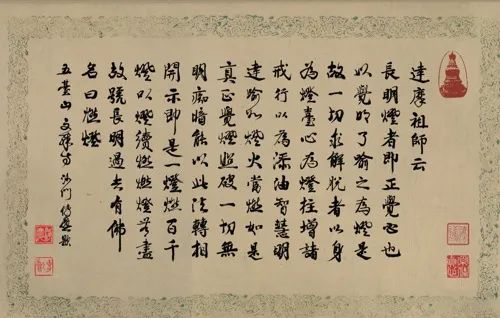 達摩祖師云
長明燈者即正覺心也
以覺明了喻之為燈是
故一切求解脫者以身
為燈臺心為燈炷增諸
戒行以為添油智慧明
達喻如燈火當燃如是
真正覺燈照破一切無
明痴暗能以此法轉相
開示即是一燈燃百千
燈以燈續燃燃燈無盡
故號長明過去有佛
名曰燃燈
五臺山文殊寺沙門